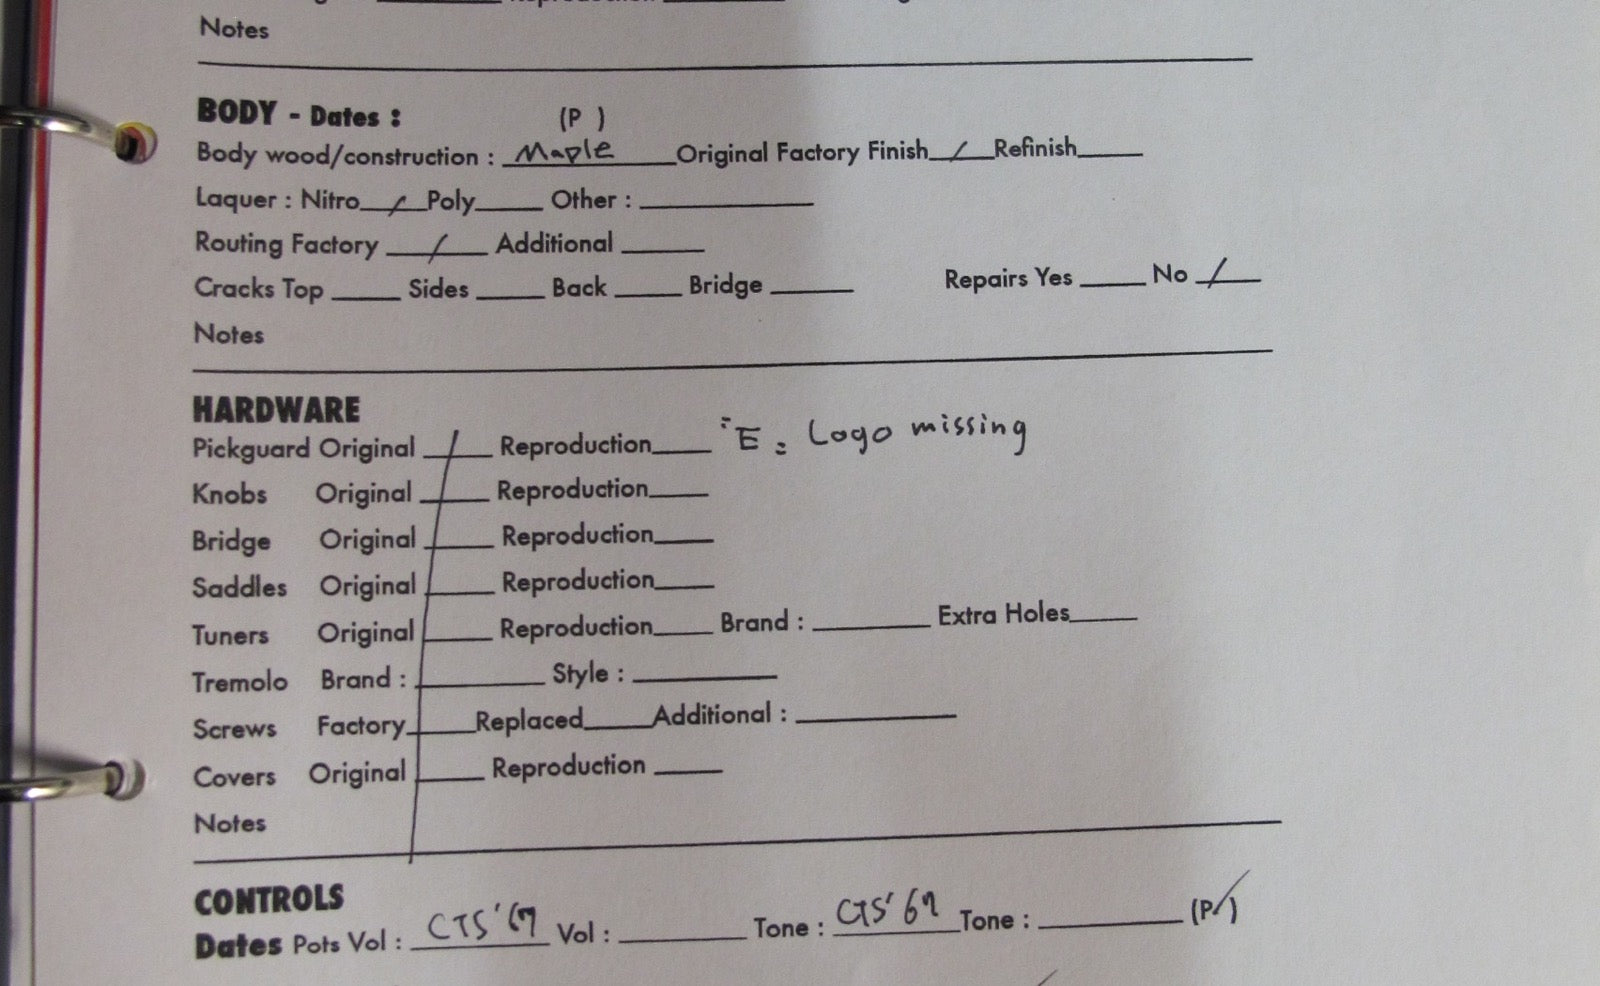 Notes
BODY - Dates : (P )
Body wood/construction : Maple Original Factory Finish / Refinish
Laquer : Nitro / Poly Other :
Routing Factory / Additional
Cracks Top Sides Back Bridge Repairs Yes No /
Notes
HARDWARE
Pickguard Original / Reproduction "E" Logo missing
Knobs Original Reproduction
Bridge Original Reproduction
Saddles Original Reproduction
Tuners Original Reproduction Brand : Extra Holes
Tremolo Brand : Style :
Screws Factory Replaced Additional :
Covers Original Reproduction
Notes
CONTROLS
Dates Pots Vol : CTS '67 Vol : Tone : CTS' 67 Tone : (P/)